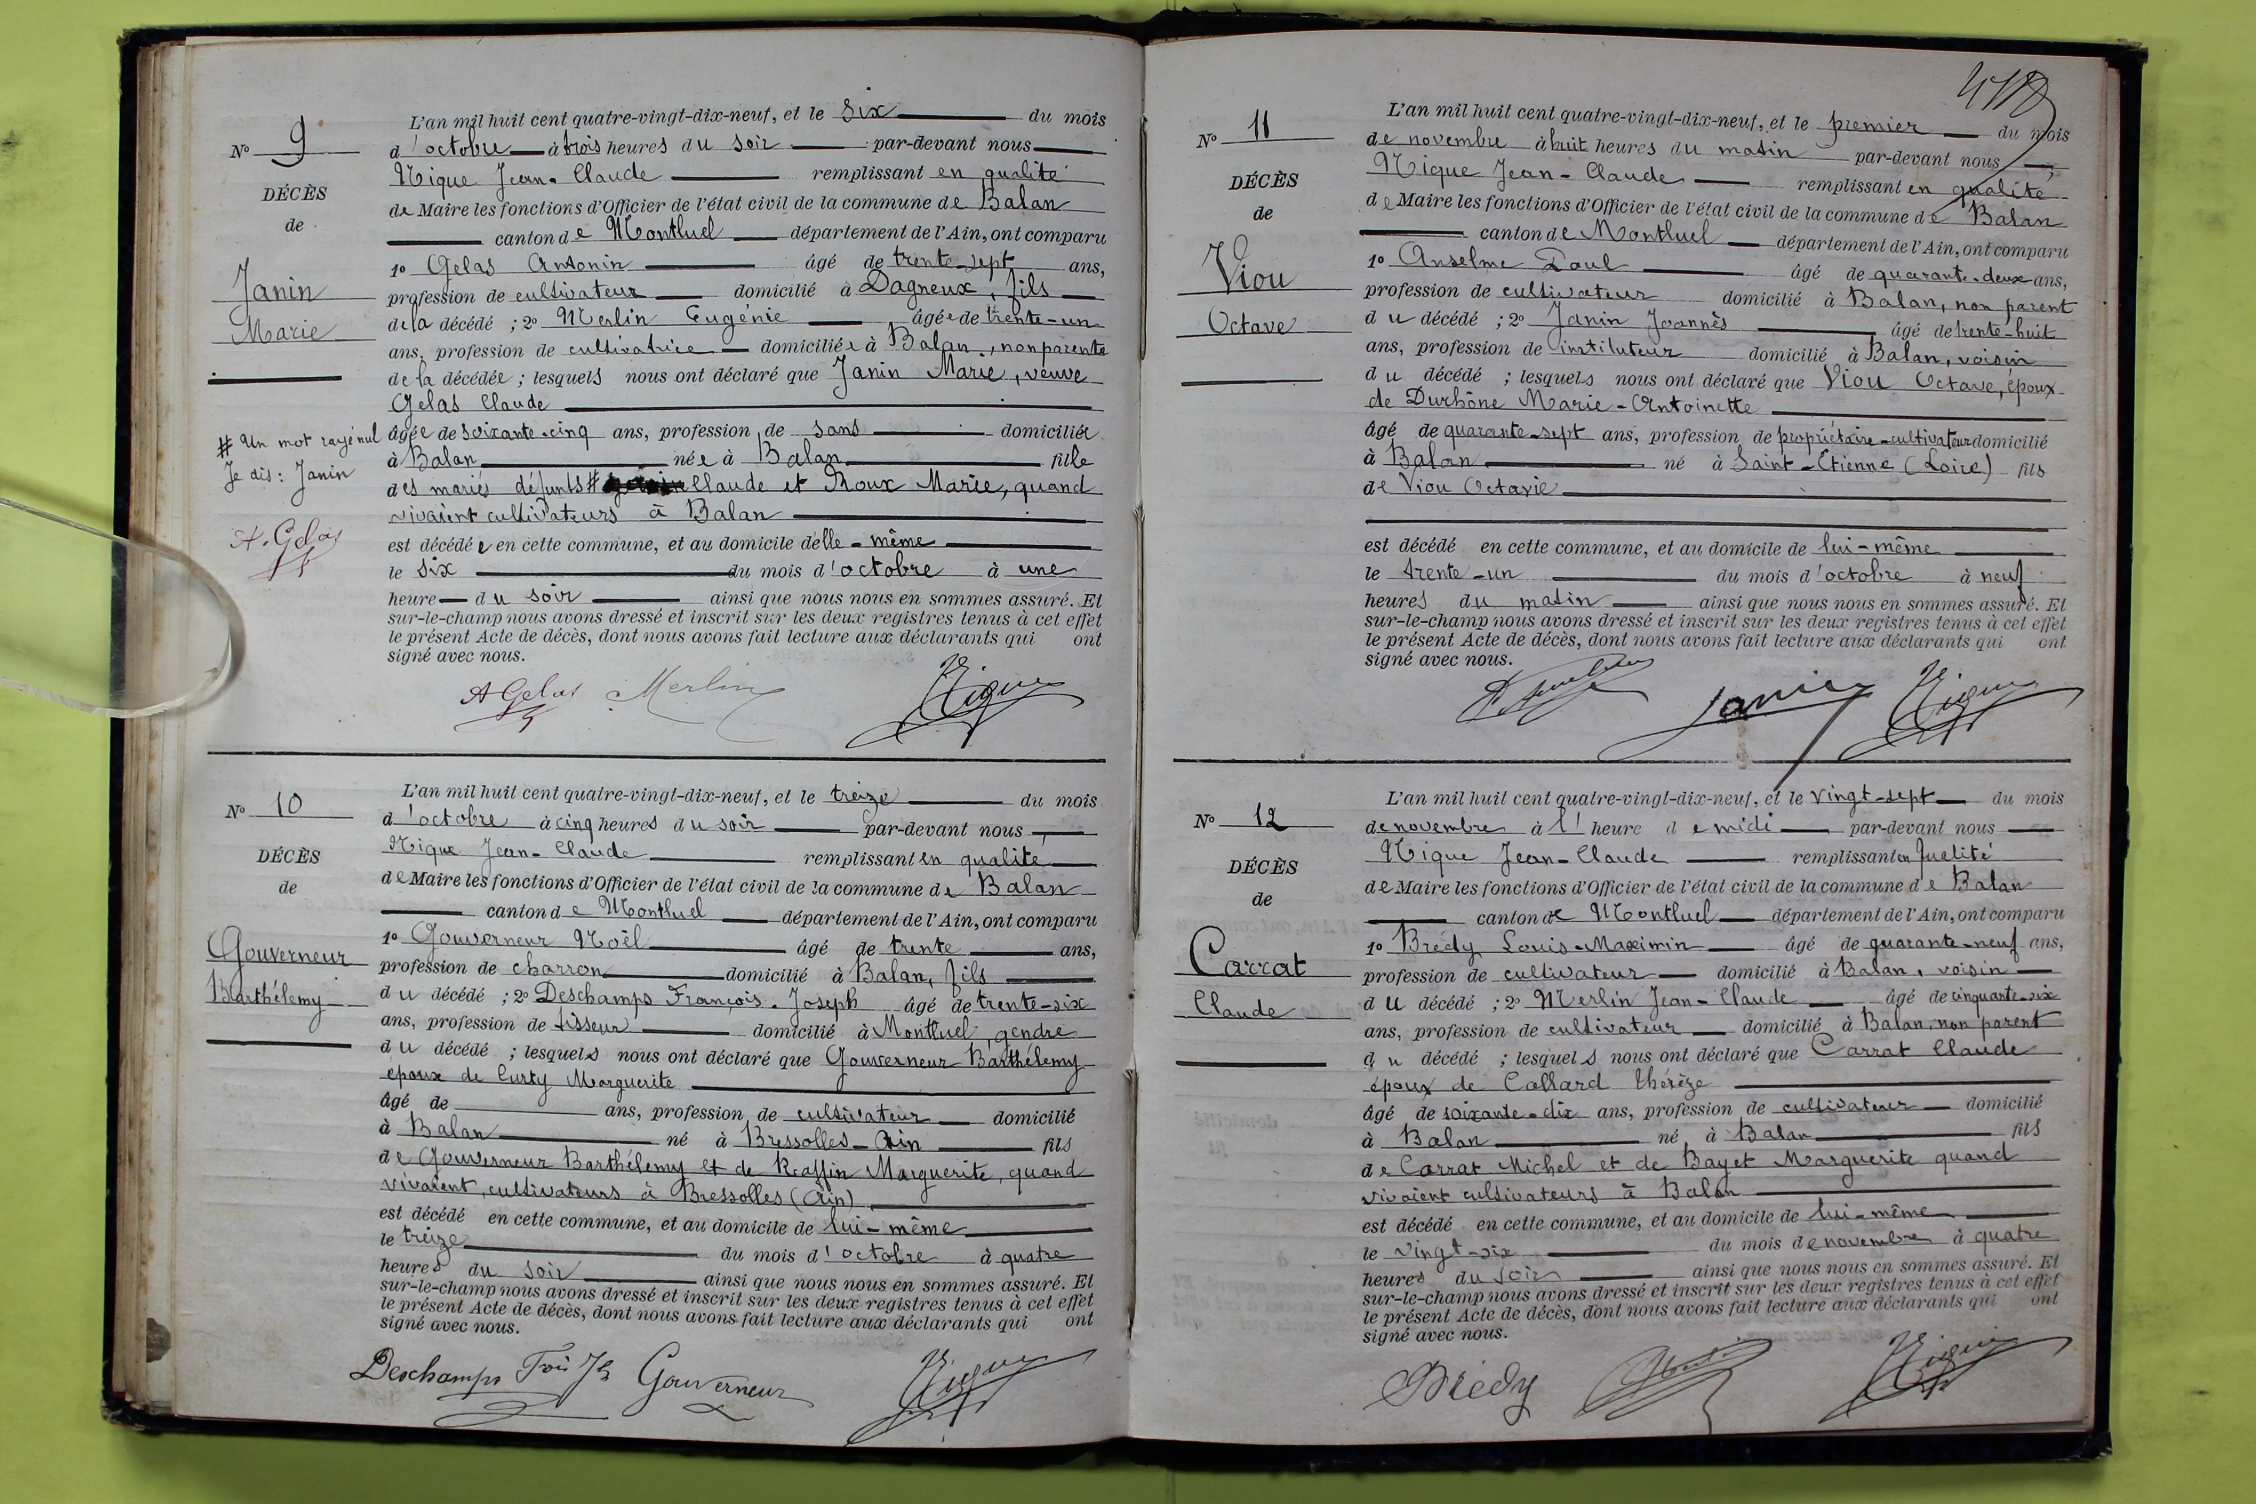 N° 9
DÉCÈS
de
Janin
Marie
# Un mot rayé nul
Je dis : Janin
A. Gelas
L'an mil huit cent quatre-vingt-dix-neuf, et le six du mois
d'octobre à trois heures du soir par-devant nous
Nique Jean-Claude remplissant en qualité
de Maire les fonctions d'Officier de l'état civil de la commune de Balan
canton de Montluel département de l'Ain, ont comparu
1° Gelas Antonin âgé de trente-sept ans,
profession de cultivateur domicilié à Dagneux, fils
de la décédé ; 2° Merlin Eugénie âgée de trente-un
ans, profession de cultivatrice domiciliée à Balan, non parente
de la décédée ; lesquels nous ont déclaré que Janin Marie, veuve
Gelas Claude
âgée de soixante-cinq ans, profession de sans domiciliée
à Balan née à Balan fille
des mariés défunts # Claude et Roux Marie, quand
vivaient cultivateurs à Balan
est décédée en cette commune, et au domicile d'elle-même
le six du mois d'octobre à une
heure du soir ainsi que nous nous en sommes assuré. Et
sur-le-champ nous avons dressé et inscrit sur les deux registres tenus à cet effet
le présent Acte de décès, dont nous avons fait lecture aux déclarants qui ont
signé avec nous.
A Gelas Merlin Nique
N° 10
DÉCÈS
de
Gouverneur
Barthélemy
L'an mil huit cent quatre-vingt-dix-neuf, et le treize du mois
d'octobre à cinq heures du soir par-devant nous
Nique Jean-Claude remplissant en qualité
de Maire les fonctions d'Officier de l'état civil de la commune de Balan
canton de Montluel département de l'Ain, ont comparu
1° Gouverneur Noël âgé de trente ans,
profession de charron domicilié à Balan, fils
du décédé ; 2° Deschamps François-Joseph âgé de trente-six
ans, profession de tisseur domicilié à Montluel, gendre
du décédé ; lesquels nous ont déclaré que Gouverneur Barthélemy
époux de Curty Marguerite
âgé de ans, profession de cultivateur domicilié
à Balan né à Bressolles-Ain fils
de Gouverneur Barthélemy et de Raffin Marguerite, quand
vivaient, cultivateurs à Bressolles (Ain)
est décédé en cette commune, et au domicile de lui-même
le treize du mois d'octobre à quatre
heures du soir ainsi que nous nous en sommes assuré. Et
sur-le-champ nous avons dressé et inscrit sur les deux registres tenus à cet effet
le présent Acte de décès, dont nous avons fait lecture aux déclarants qui ont
signé avec nous.
Deschamps Gouverneur Nique
N° 11
DÉCÈS
de
Viou
Octave
L'an mil huit cent quatre-vingt-dix-neuf, et le premier du mois
de novembre à huit heures du matin par-devant nous
Nique Jean-Claude remplissant en qualité
de Maire les fonctions d'Officier de l'état civil de la commune de Balan
canton de Montluel département de l'Ain, ont comparu
1° Anselme Paul âgé de quarante-deux ans,
profession de cultivateur domicilié à Balan, non parent
du décédé ; 2° Janin Joannès âgé de trente-huit
ans, profession de instituteur domicilié à Balan, voisin
du décédé ; lesquels nous ont déclaré que Viou Octave, époux
de Durhône Marie-Antoinette
âgé de quarante-sept ans, profession de propriétaire-cultivateur domicilié
à Balan né à Saint-Etienne (Loire) fils
de Viou Octavie
est décédé en cette commune, et au domicile de lui-même
le trente-un du mois d'octobre à neuf
heures du matin ainsi que nous nous en sommes assuré. Et
sur-le-champ nous avons dressé et inscrit sur les deux registres tenus à cet effet
le présent Acte de décès, dont nous avons fait lecture aux déclarants qui ont
signé avec nous.
Janin Nique
N° 12
DÉCÈS
de
Carrat
Claude
L'an mil huit cent quatre-vingt-dix-neuf, et le vingt-sept du mois
de novembre à l' heure de midi par-devant nous
Nique Jean-Claude remplissant en qualité
de Maire les fonctions d'Officier de l'état civil de la commune de Balan
canton de Montluel département de l'Ain, ont comparu
1° Brédy Louis-Maximin âgé de quarante-neuf ans,
profession de cultivateur domicilié à Balan, voisin
du décédé ; 2° Merlin Jean-Claude âgé de cinquante-six
ans, profession de cultivateur domicilié à Balan, non parent
du décédé ; lesquels nous ont déclaré que Carrat Claude
époux de Collard Thérèze
âgé de soixante-dix ans, profession de cultivateur domicilié
à Balan né à Balan fils
de Carrat Michel et de Bayet Marguerite quand
vivaient cultivateurs à Balan
est décédé en cette commune, et au domicile de lui-même
le vingt-six du mois de novembre à quatre
heures du soir ainsi que nous nous en sommes assuré. Et
sur-le-champ nous avons dressé et inscrit sur les deux registres tenus à cet effet
le présent Acte de décès, dont nous avons fait lecture aux déclarants qui ont
signé avec nous.
Brédy Nique